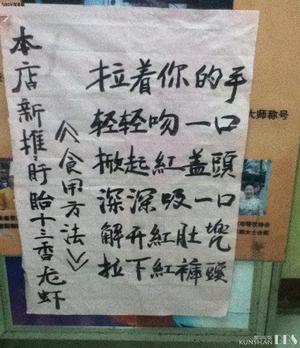 本店新推:盱眙十三香龙虾
《食用方法》
拉着你的手
轻轻吻一口
掀起紅盖頭
深深吸一口
解开紅肚兜
拉下紅褲頭
大师称号
KUNSHAN BBS